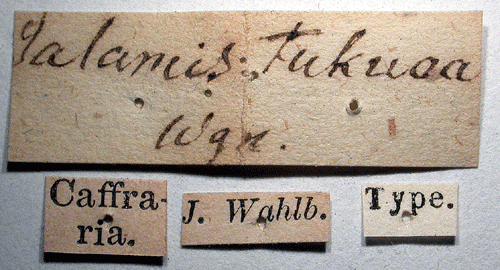 Salamis: Tukuoa
Wgn.
Caffra-
ria.
J. Wahlb.
Type.